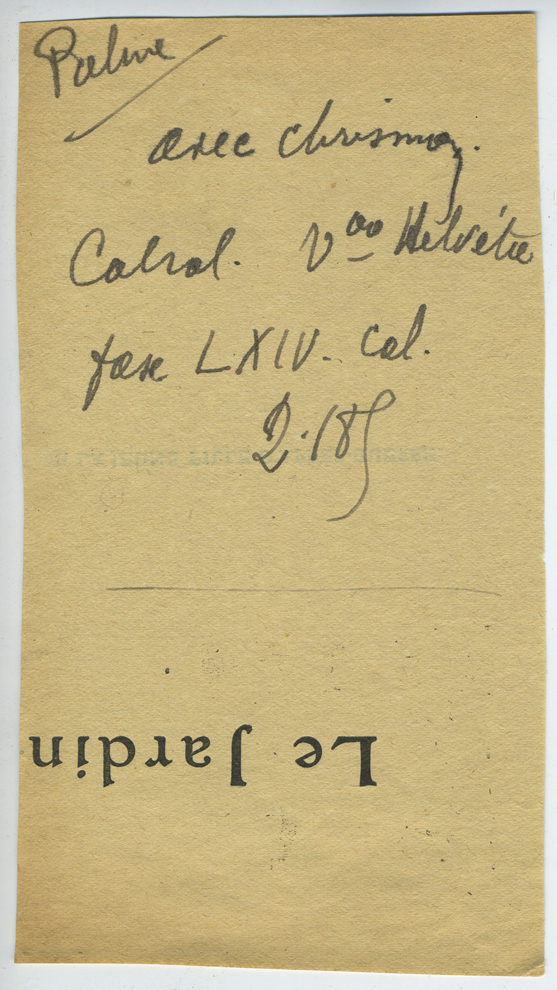 Palme
avec chrismon.
Cabrol. V⁰⁰ Helvétie
fasc LXIV. col.
2.185
Le Jardin